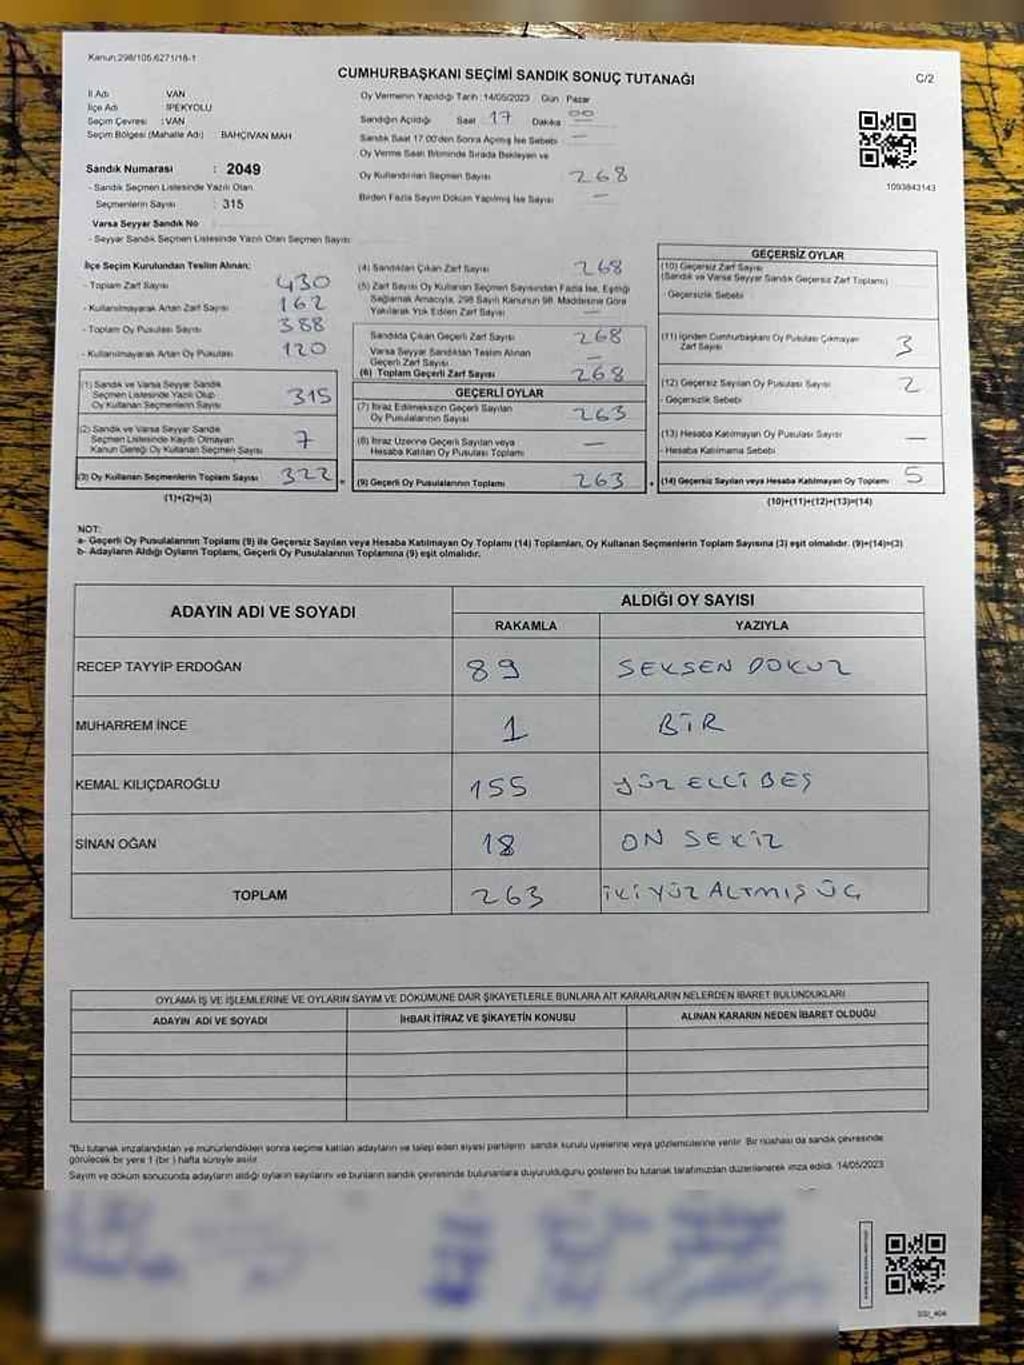 Kanun:298/105,6271/18-1
CUMHURBAŞKANI SEÇİMİ SANDIK SONUÇ TUTANAĞI
C/2
İl Adı VAN
İlçe Adı İPEKYOLU
Seçim Çevresi : VAN
Seçim Bölgesi (Mahalle Adı) : BAHÇIVAN MAH
Sandık Numarası : 2049
- Sandık Seçmen Listesinde Yazılı Olan
Seçmenlerin Sayısı : 315
Varsa Seyyar Sandık No
- Seyyar Sandık Seçmen Listesinde Yazılı Olan Seçmen Sayısı:
Oy Vermenin Yapıldığı Tarih : 14/05/2023 Gün Pazar
Sandığın Açıldığı Saat 17 Dakika 00
Sandık Saat 17.00'den Sonra Açılmış İse Sebebi —
Oy Verme Saati Bitiminde Sırada Bekleyen ve
Oy Kullandırılan Seçmen Sayısı 268
Birden Fazla Sayım Döküm Yapılmış İse Sayısı —
1093843143
İlçe Seçim Kurulundan Teslim Alınan:
- Toplam Zarf Sayısı 430
- Kullanılmayarak Artan Zarf Sayısı 162
- Toplam Oy Pusulası Sayısı 388
- Kullanılmayarak Artan Oy Pusulası 120
(1) Sandık ve Varsa Seyyar Sandık
Seçmen Listesinde Yazılı Olup
Oy Kullanan Seçmenlerin Sayısı 315
(2) Sandık ve Varsa Seyyar Sandık
Seçmen Listesinde Kaydı Olmayan
Kanun Gereği Oy Kullanan Seçmen Sayısı 7
(3) Oy Kullanan Seçmenlerin Toplam Sayısı 322 =
(1)+(2)=(3)
(4) Sandıktan Çıkan Zarf Sayısı 268
(5) Zarf Sayısı Oy Kullanan Seçmen Sayısından Fazla İse, Eşitliği
Sağlamak Amacıyla, 298 Sayılı Kanunun 98. Maddesine Göre
Yakılarak Yok Edilen Zarf Sayısı —
Sandıkta Çıkan Geçerli Zarf Sayısı 268
Varsa Seyyar Sandıktan Teslim Alınan
Geçerli Zarf Sayısı —
(6) Toplam Geçerli Zarf Sayısı 268
GEÇERLİ OYLAR
(7) İtiraz Edilmeksizin Geçerli Sayılan
Oy Pusulalarının Sayısı 263
(8) İtiraz Üzerine Geçerli Sayılan veya
Hesaba Katılan Oy Pusulası Toplamı —
(9) Geçerli Oy Pusulalarının Toplamı 263 +
GEÇERSİZ OYLAR
(10) Geçersiz Zarf Sayısı
(Sandık ve Varsa Seyyar Sandık Geçersiz Zarf Toplamı)
- Geçersizlik Sebebi
(11) İçinden Cumhurbaşkanı Oy Pusulası Çıkmayan
Zarf Sayısı 3
(12) Geçersiz Sayılan Oy Pusulası Sayısı 2
- Geçersizlik Sebebi
(13) Hesaba Katılmayan Oy Pusulası Sayısı —
- Hesaba Katılmama Sebebi
(14) Geçersiz Sayılan veya Hesaba Katılmayan Oy Toplamı 5
(10)+(11)+(12)+(13)=(14)
NOT:
a- Geçerli Oy Pusulalarının Toplamı (9) ile Geçersiz Sayılan veya Hesaba Katılmayan Oy Toplamı (14) Toplamları, Oy Kullanan Seçmenlerin Toplam Sayısına (3) eşit olmalıdır. (9)+(14)=(3)
b- Adayların Aldığı Oyların Toplamı, Geçerli Oy Pusulalarının Toplamına (9) eşit olmalıdır.
ADAYIN ADI VE SOYADI
ALDIĞI OY SAYISI
RAKAMLA YAZIYLA
RECEP TAYYİP ERDOĞAN 89 SEKSEN DOKUZ
MUHARREM İNCE 1 BİR
KEMAL KILIÇDAROĞLU 155 YÜZ ELLİ BEŞ
SİNAN OĞAN 18 ON SEKİZ
TOPLAM 263 İKİ YÜZ ALTMIŞ ÜÇ
OYLAMA İŞ VE İŞLEMLERİNE VE OYLARIN SAYIM VE DÖKÜMÜNE DAİR ŞİKAYETLERLE BUNLARA AİT KARARLARIN NELERDEN İBARET BULUNDUKLARI
ADAYIN ADI VE SOYADI İHBAR İTİRAZ VE ŞİKAYETİN KONUSU ALINAN KARARIN NEDEN İBARET OLDUĞU
"Bu tutanak imzalandıktan ve mühürlendikten sonra seçime katılan adayların ve talep eden siyasi partilerin sandık kurulu üyelerine veya gözlemcilerine verilir. Bir nüshası da sandık çevresinde
görülecek bir yere 1 (bir) hafta süreyle asılır.
Sayım ve döküm sonucunda adayların aldığı oyların sayılarını ve bunların sandık çevresinde bulunanlara duyurulduğunu gösteren bu tutanak tarafımızdan düzenlenerek imza edildi. 14/05/2023